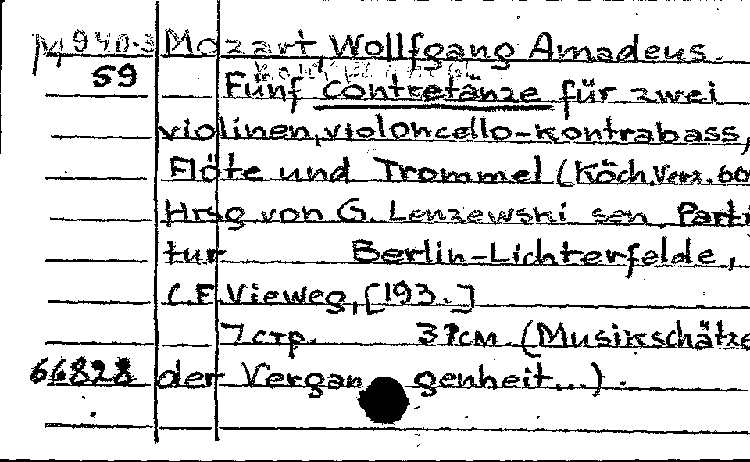 М 940-3 Mozart, Wollfgang Amadeus.
59 Fünf contretänze für zwei
violinen, violoncello-kontrabass,
Flöte und Trommel (Köch. Verz. 60
Hrsg von G. Lenzewski sen. Parti
tur Berlin-Lichterfelde,
C.F. Vieweg, [193.]
7 стр. 37см. (Musikschätze
66828 der Vergangenheit...).